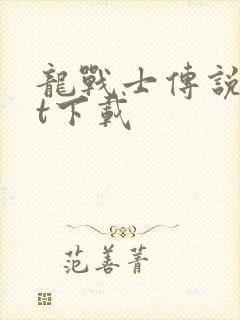 龍戰士傳說
t下載
范善菁